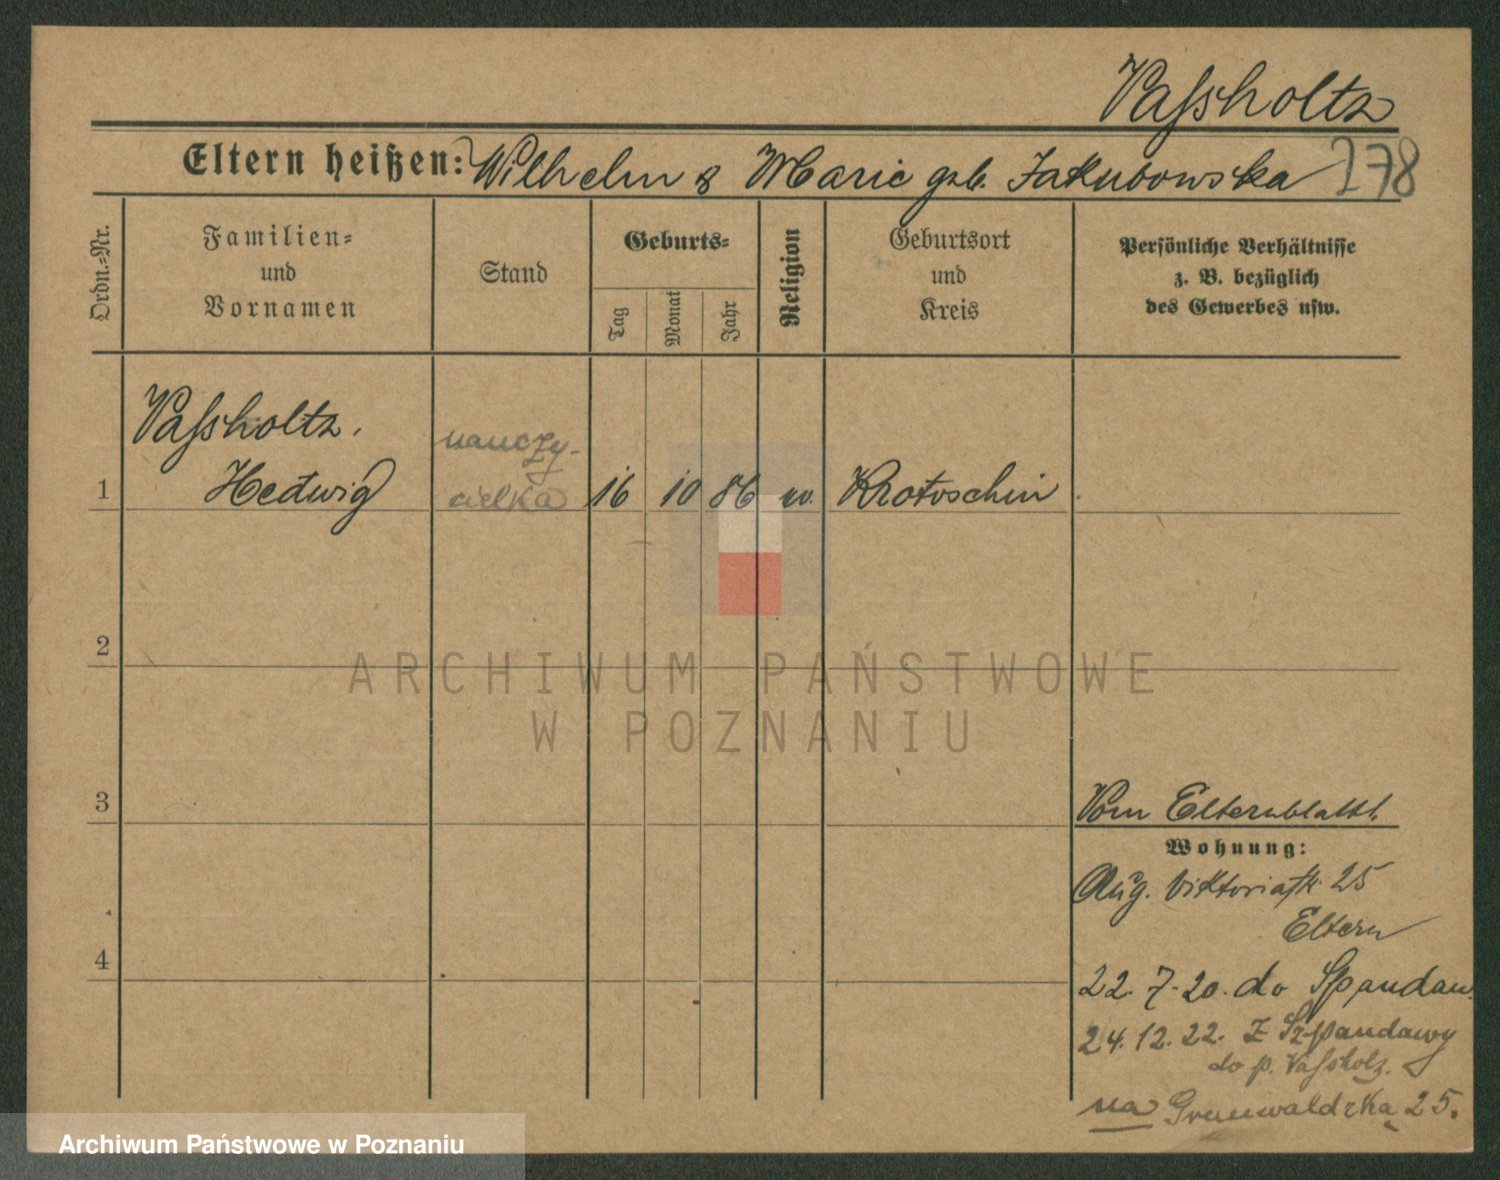 Vaſsholtz
Eltern heißen: Wilhelm & Marie geb. Jakubowska 278
Ordn.-Nr.
Familien-
und
Vornamen
Stand
Geburts-
Tag
Monat
Jahr
Religion
Geburtsort
und
Kreis
Persönliche Verhältnisse
z. B. bezüglich
des Gewerbes usw.
Vaſsholtz.
nauczy-
1 Hedwig cielka 16 10 86 Krotoschin
2
ARCHIWUM PAŃSTWOWE
W POZNANIU
3
Vom Elternblatt.
Wohnung:
Aug. Viktoriastr. 25
Eltern
4
22. 7. 20. do Spandau.
24. 12. 22. Z Szpandawy
do p. Vaſsholz.
na Grunwaldzka 25.
Archiwum Państwowe w Poznaniu